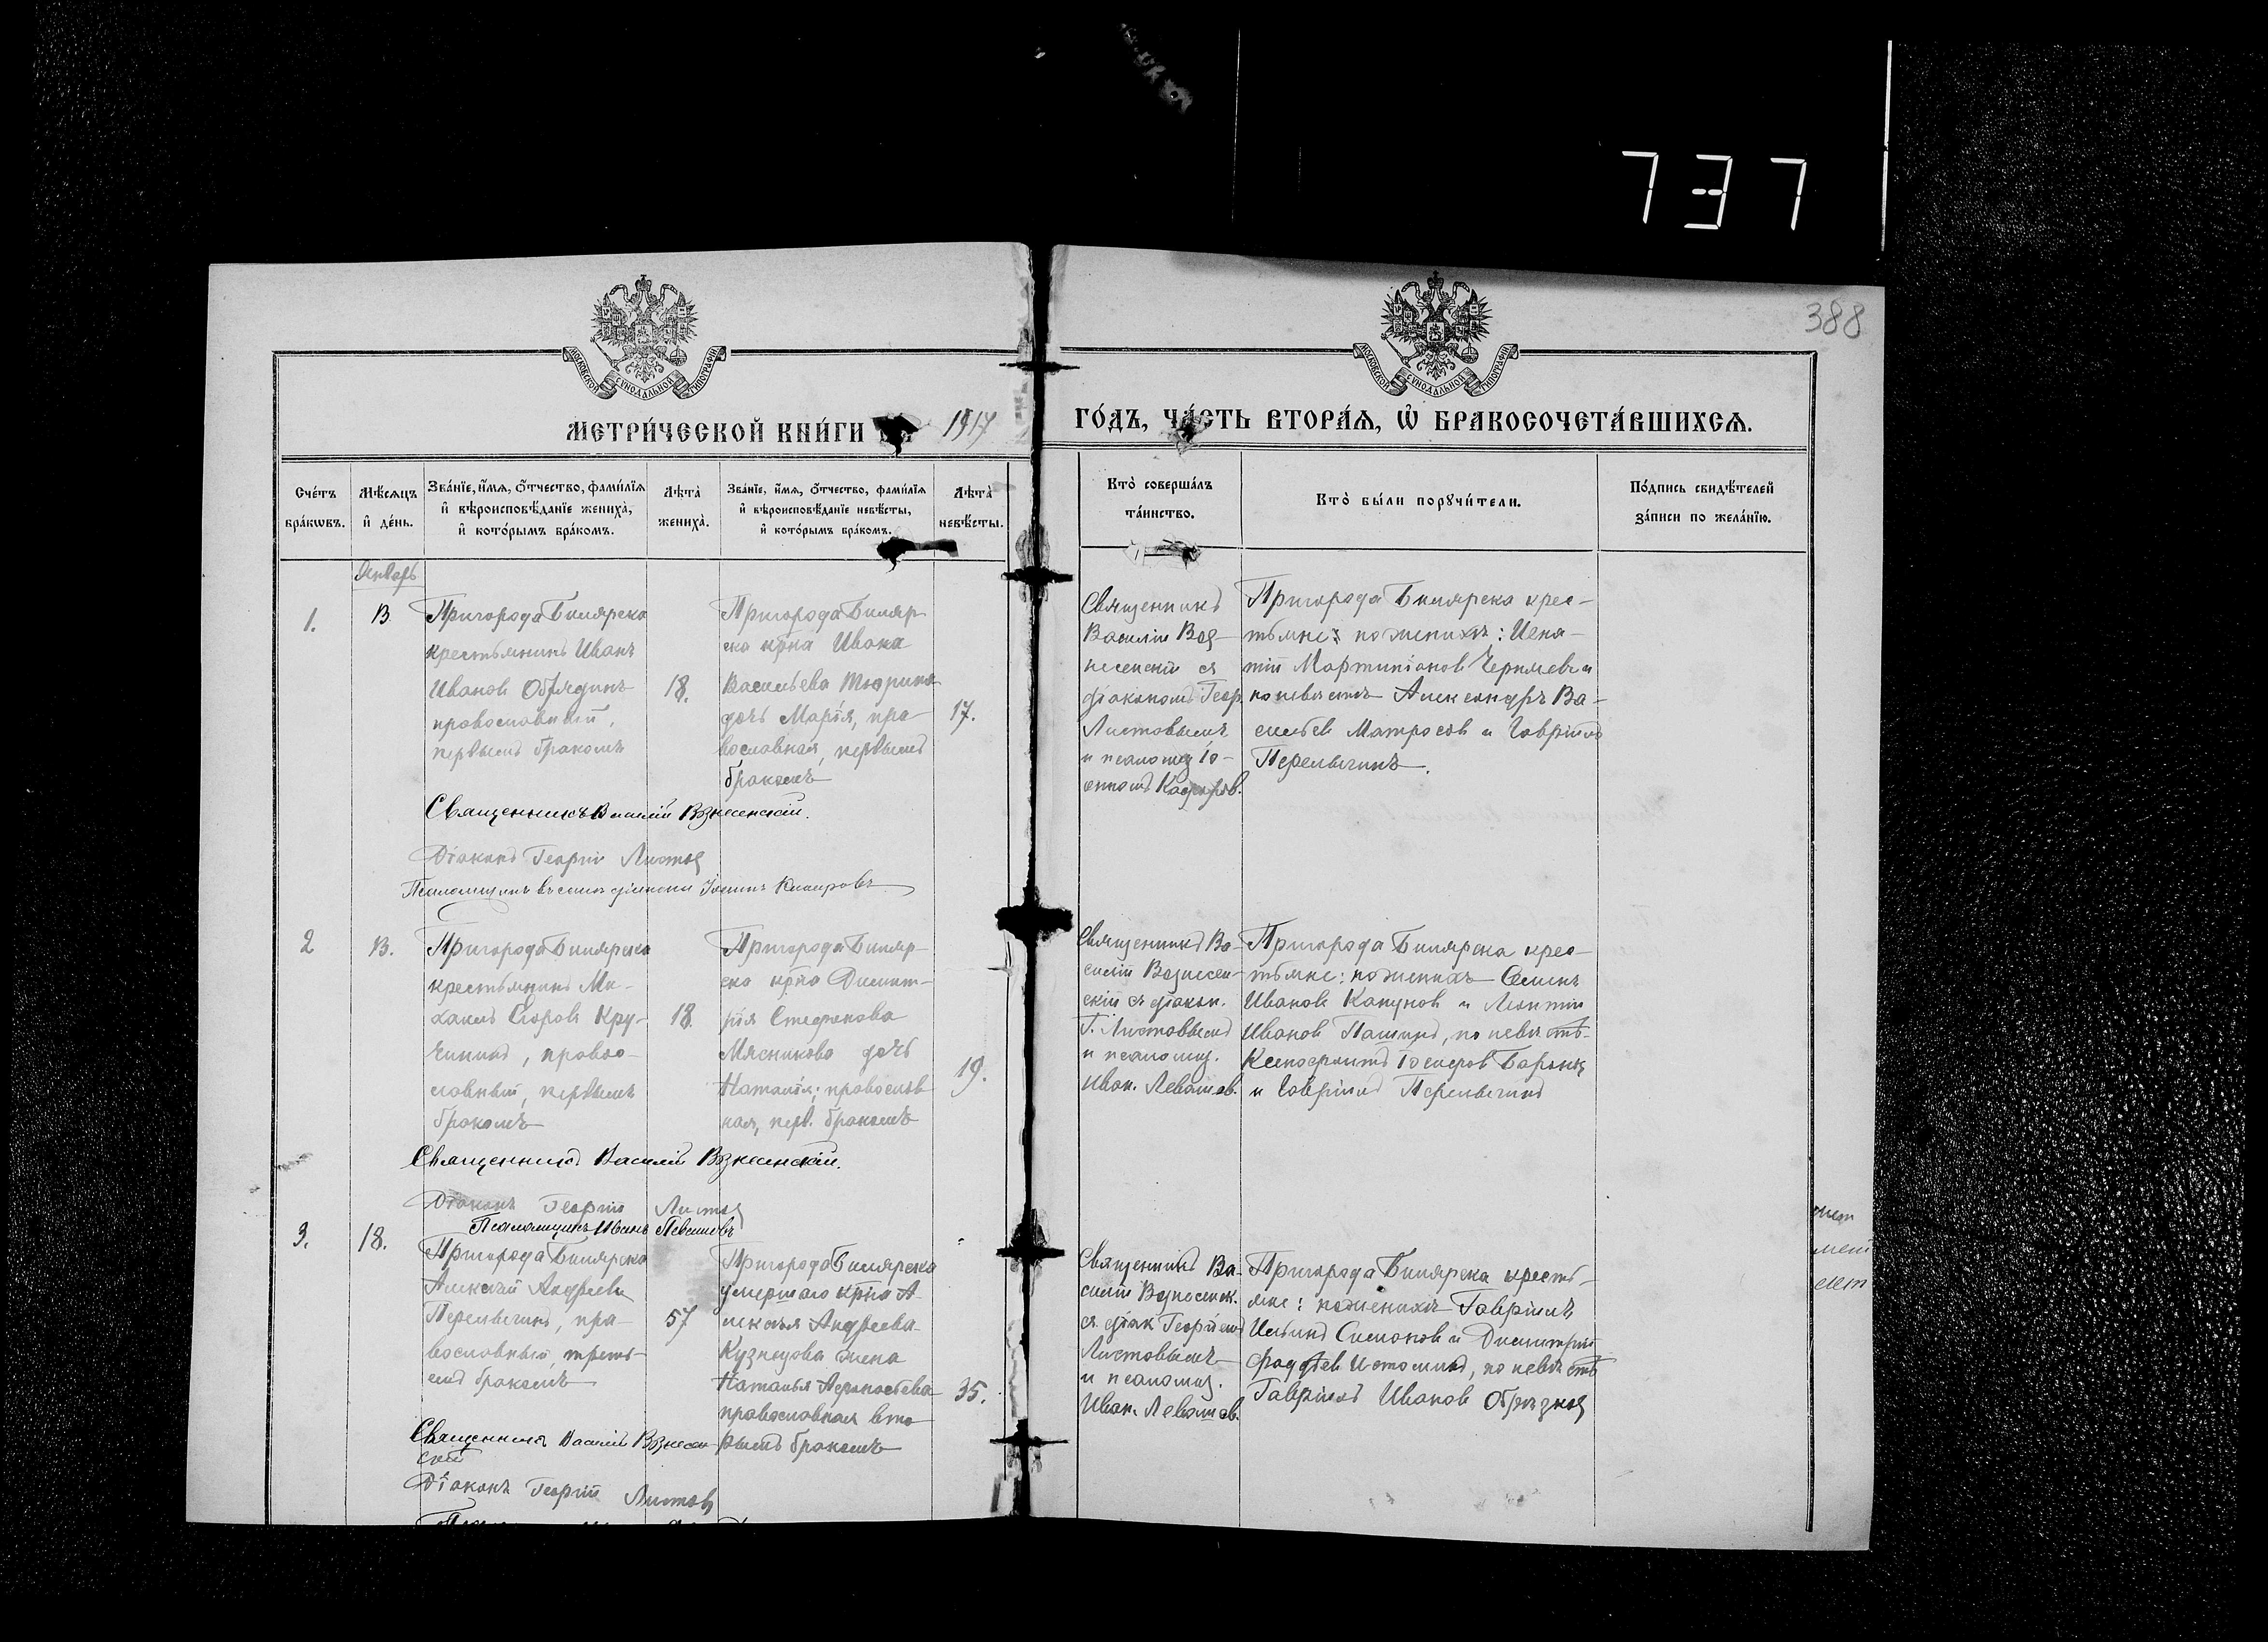 737
388
МОСКОВСКОЙ СѴНОДАЛЬНОЙ ТИПОГРАФІИ
МОСКОВСКОЙ СѴНОДАЛЬНОЙ ТИПОГРАФІИ
МЕТРИ́ЧЕСКОЙ КНИ́ГИ 1917
ГО́ДЪ, ЧА́СТЬ ВТОРА́Ѧ, Ѡ҆ БРАКОСОЧЕТА́ВШИХСѦ.
Сче́тъ бра́кѡвъ.
Мѣ́сѧцъ и҆ де́нь.
Зва́нїе, и҆́мѧ, ѻ҆́тчество, фами́лїѧ и҆ вѣроисповѣ́данїе жениха̀, и҆ кото́рымъ бра́комъ.
Лѣта̀ жениха̀.
Зва́нїе, и҆́мѧ, ѻ҆́тчество, фами́лїѧ и҆ вѣроисповѣ́данїе невѣ́сты, и҆ кото́рымъ бра́комъ.
Лѣта̀ невѣ́сты.
Кто̀ соверша́лъ та́инство.
Кто̀ бы́ли порꙋчи́тели.
По́дпись свидѣ́телей за́писи по жела́нїю.
Январь
1.
13.
Пригорода Билярска
крестьянинъ Иванъ
Ивановъ Обрядинъ
православный,
первымъ бракомъ
18.
Пригорода Биляр-
ска кр-на Ивана
Васильева Тюрина
дочь Марія, пра-
вославная, первымъ
бракомъ
17.
Священникъ
Василій Воз-
несенскій съ
діакономъ Геор.
Листовымъ
и псаломщ. Іо-
Пригорода Билярска крес-
тьяне: по женихѣ: Игна-
тій Мартиніановъ Черняевъ и
по невѣстѣ Александръ Ва-
сильевъ Матросовъ и Гавріилъ
Перелыгинъ.
Священникъ Василій Вознесенскій.
Діаконъ Георгій Листовъ
2
13.
Пригорода Билярска
крестьянинъ Ми-
хаилъ Егоровъ Кру-
чининъ, право-
славный, первымъ
бракомъ
18.
Пригорода Биляр-
ска кр-на Димит-
рія Стефанова
Мясникова дочь
Наталія; православ-
ная, перв. бракомъ
19.
Священникъ Ва-
силій Вознесен-
скій съ діакон.
Г. Листовымъ
и псаломщ.
Иван. Левашов.
Пригорода Билярска крес-
тьяне: по женихѣ Семенъ
Ивановъ и Леонтій
Ивановъ Пашинъ, по невѣстѣ-
Ксенофонтъ
и Гавріилъ Перелыгинъ
Священникъ Василій Вознесенскій.
Діаконъ Георгій Листовъ
Псаломщикъ Иванъ Левашовъ
3.
18.
Пригорода Билярска
Алексѣй Андреевъ
Перелыгинъ, пра-
вославный, треть-
имъ бракомъ
57
Пригорода Билярска
умершаго кр-на А-
лексѣя Андреева
Кузнецова жена
Наталья Аѳанасьева
православная вто-
рымъ бракомъ
35.
Священникъ Ва-
силій Вознесенск.
съ діак Георгіемъ
Листовымъ
и псаломщ.
Иван. Левашов.
Пригорода Билярска кресть-
яне: по женихѣ Гавріилъ
Ильинъ Симоновъ и Димитрій
Фаддѣевъ Истоминъ, по невѣстѣ
Гавріилъ Ивановъ
Священникъ Василій Вознесен-
скій
Діаконъ Георгій Листовъ